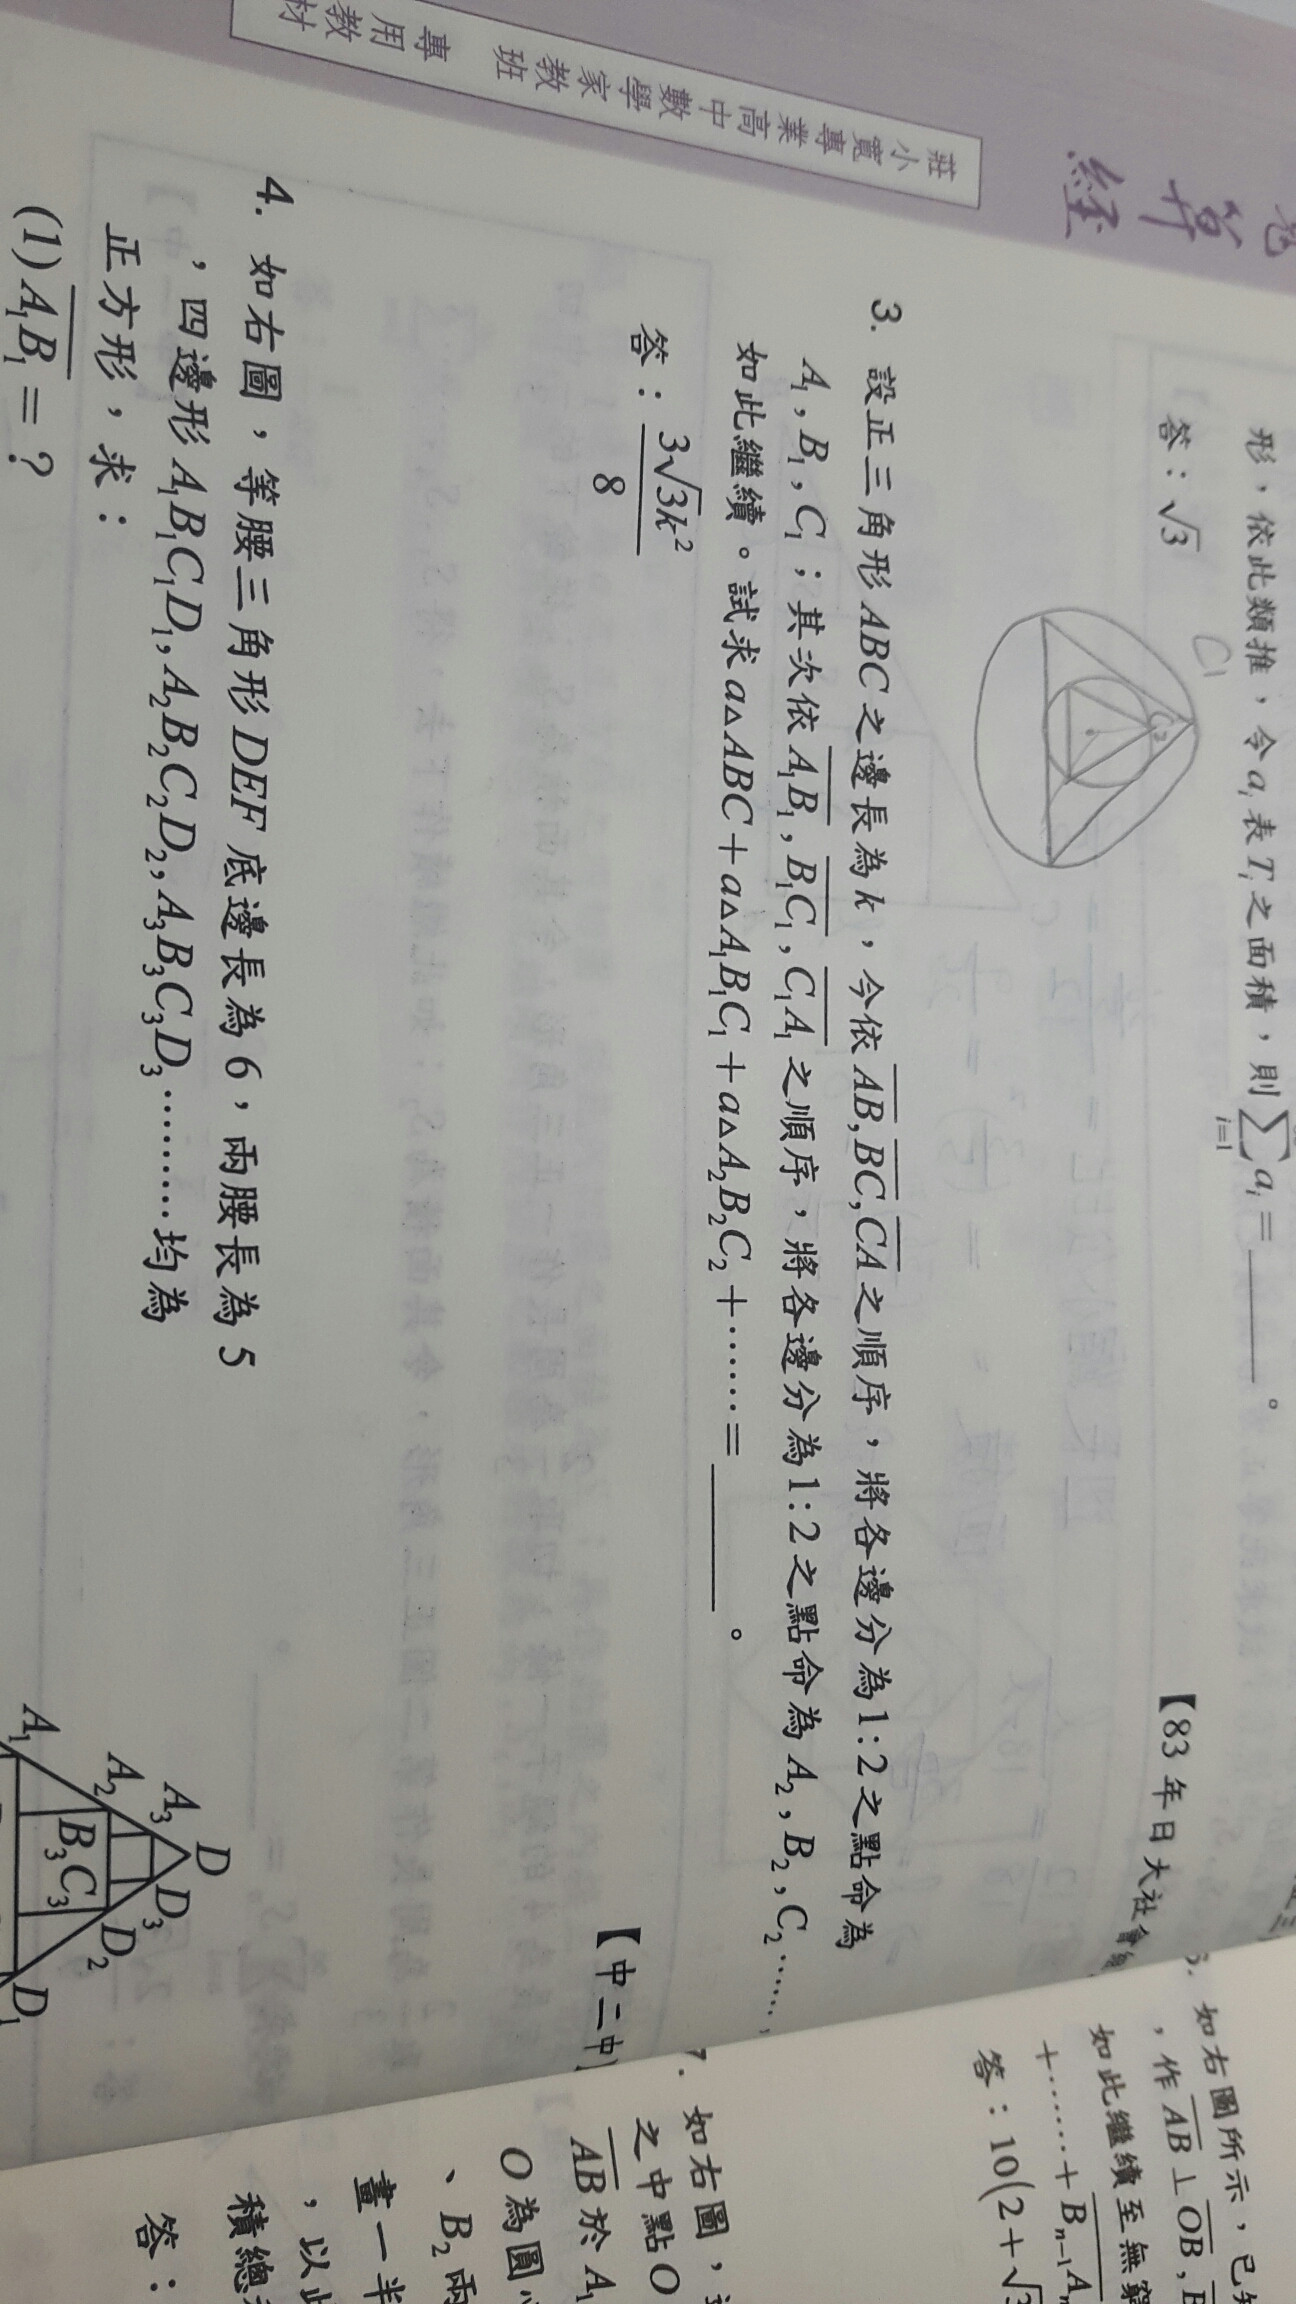 莊小寬專業高中數學家教班 專用教材
算經
形,依此類推,令a_i表T_i之面積,則∑_{i=1} a_i=______。
答:√3
【83年日大社會
C_1
3. 設正三角形ABC之邊長為k,今依\overline{AB},\overline{BC},\overline{CA}之順序,將各邊分為1:2之點命為
A_1,B_1,C_1;其次依\overline{A_1B_1},\overline{B_1C_1},\overline{C_1A_1}之順序,將各邊分為1:2之點命為A_2,B_2,C_2……,
如此繼續。試求a△ABC+a△A_1B_1C_1+a△A_2B_2C_2+……=______。
答:\frac{3√3k^2}{8}
【中二中】
4. 如右圖,等腰三角形DEF底邊長為6,兩腰長為5
,四邊形A_1B_1C_1D_1,A_2B_2C_2D_2,A_3B_3C_3D_3………均為
正方形,求:
(1)\overline{A_1B_1}=?
D
A_3 D_3
A_2 D_2
B_3 C_3
A_1 D_1
如右圖所示,已知
,作\overline{AB}⊥\overline{OB},
如此繼續至無窮
+……+\overline{B_{n-1}A_n}
答:10(2+√
7. 如右圖,
之中點O
\overline{AB}於A_1
O為圓心
、B_2兩
畫一半
,以此
積總
答: